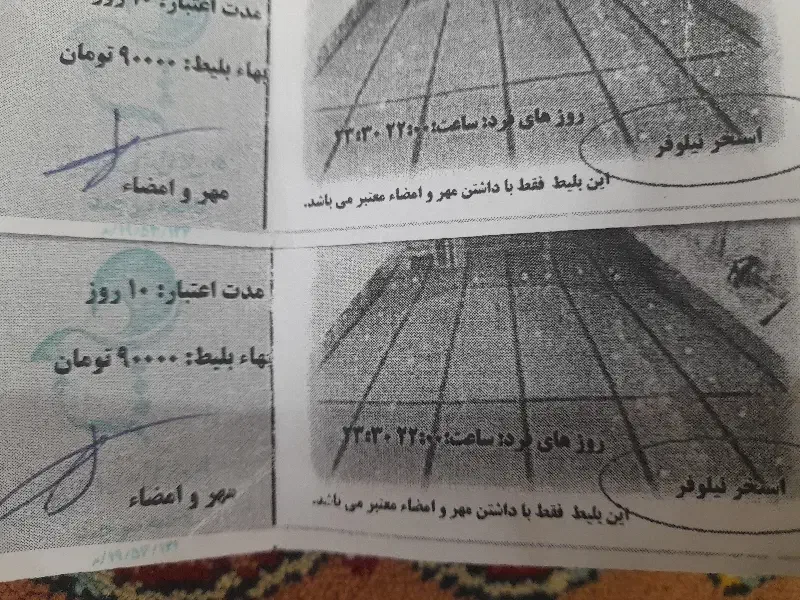 مدت اعتبار: ۱۰ روز
بهاء بلیط: ۹۰۰۰۰ تومان
مهر و امضاء
روز های فرد: ساعت: ۲۲:۰۰ ۲۳:۳۰
استخر نیلوفر
این بلیط فقط با داشتن مهر و امضاء معتبر می باشد.
مدت اعتبار: ۱۰ روز
بهاء بلیط: ۹۰۰۰۰ تومان
مهر و امضاء
روز های فرد: ساعت: ۲۲:۰۰ ۲۳:۳۰
استخر نیلوفر
این بلیط فقط با داشتن مهر و امضاء معتبر می باشد.